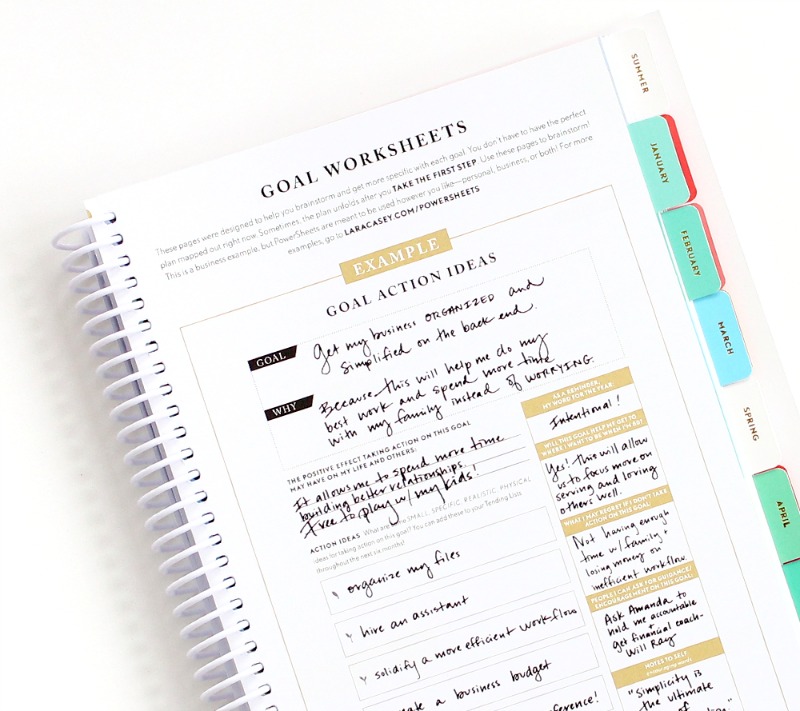 GOAL WORKSHEETS
These pages were designed to help you brainstorm and get more specific with each goal. You don't have to have the perfect
plan mapped out right now. Sometimes, the plan unfolds after you TAKE THE FIRST STEP. Use these pages to brainstorm!
This is a business example, but PowerSheets are meant to be used however you like—personal, business, or both! For more
examples, go to LARACASEY.COM/POWERSHEETS
EXAMPLE
GOAL ACTION IDEAS
GOAL
Get my business ORGANIZED and
simplified on the back end.
WHY
Because this will help me do my
best work and spend more time
with my family instead of WORRYING.
THE POSITIVE EFFECT TAKING ACTION ON THIS GOAL
MAY HAVE ON MY LIFE AND OTHERS:
It allows me to spend more time
building better relationships.
Free to play w/ my kids!
ACTION IDEAS What are some SMALL, SPECIFIC, REALISTIC, PHYSICAL
ideas for taking action on this goal? You can add these to your Tending Lists
throughout the next six months!
organize my files
hire an assistant
solidify a more efficient workflow
make a business budget
conference!
AS A REMINDER,
MY WORD FOR THE YEAR:
Intentional!
WILL THIS GOAL HELP ME GET TO
WHERE I WANT TO BE WHEN I'M 80?
Yes! This will allow
us to focus more on
serving and loving
others well.
WHAT I MAY REGRET IF I DON'T TAKE
ACTION ON THIS GOAL:
Not having enough
time w/ family +
losing money on
inefficient workflow.
PEOPLE I CAN ASK FOR GUIDANCE/
ENCOURAGEMENT ON THIS GOAL:
Ask Amanda to
hold me accountable
+
get financial coach-
Will Ray
NOTES TO SELF
"Simplicity is
the ultimate
SUMMER
JANUARY
FEBRUARY
MARCH
SPRING
APRIL